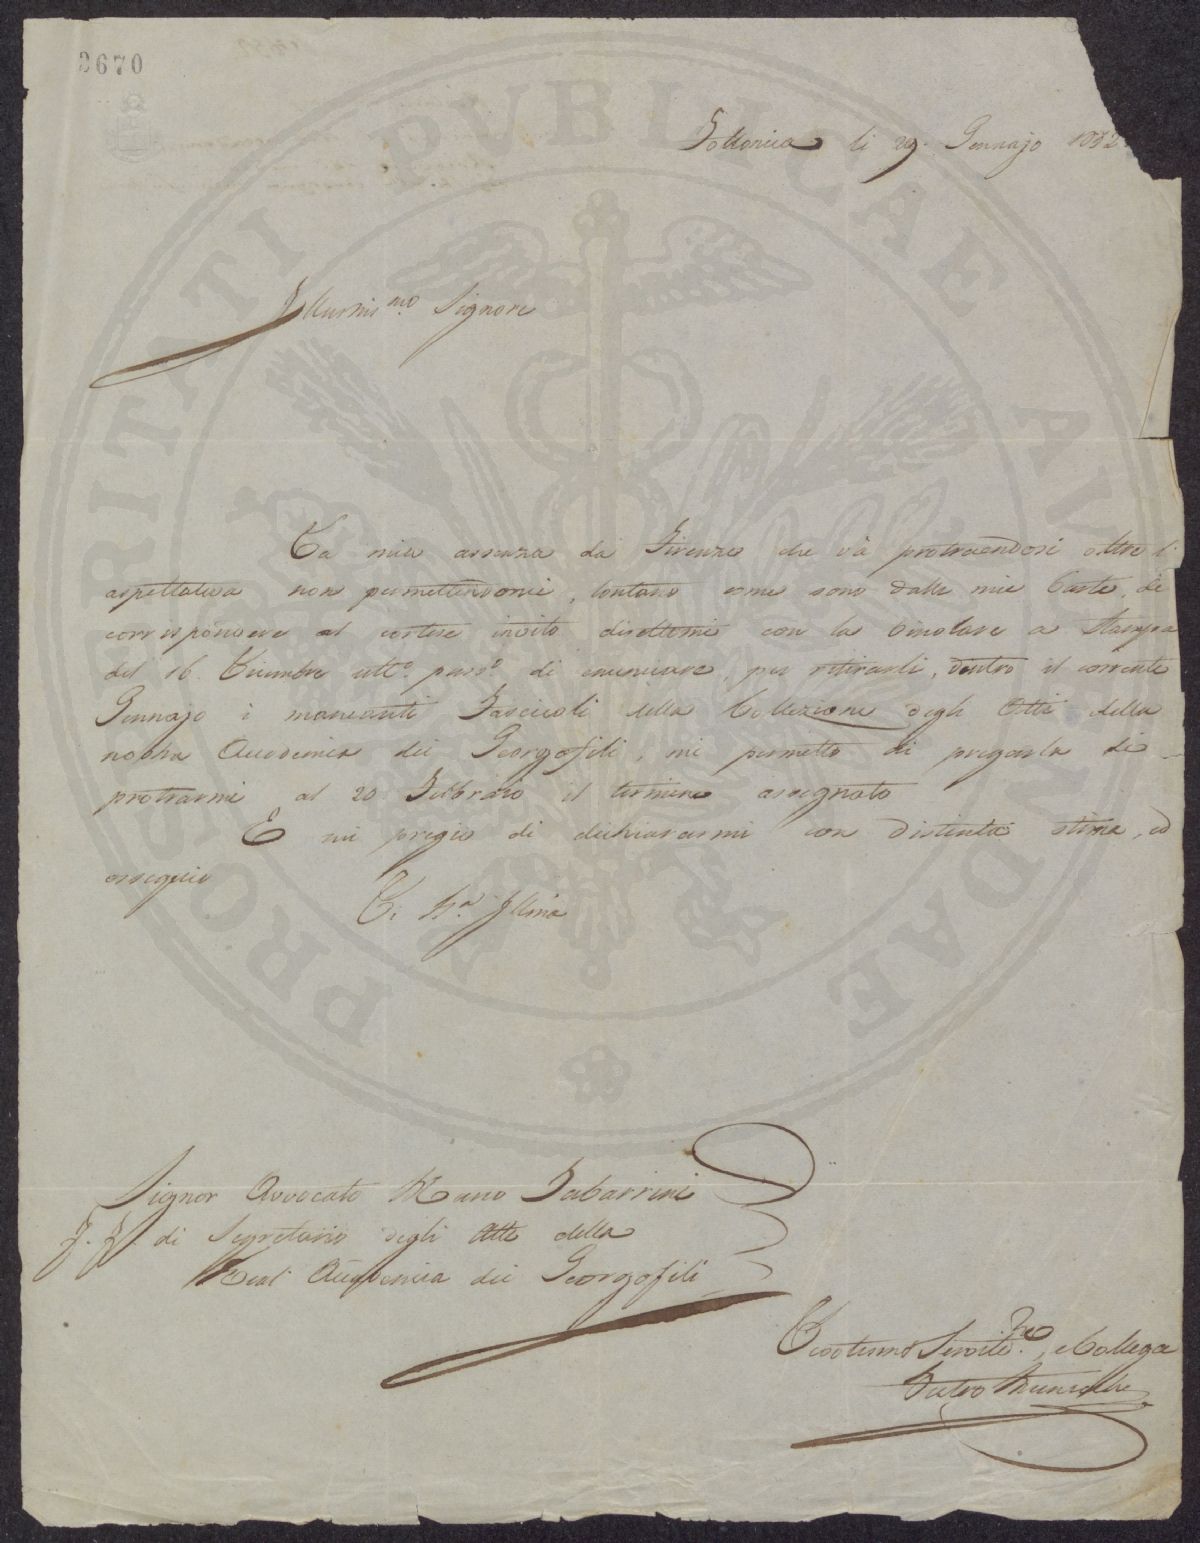 2670
Follonica li 29. Gennajo 1852
Illustris.mo Signore
La mia assenza da Firenze che và protraendosi oltre l'
aspettativa non permettendomi, lontano come sono dalle mie Carte, di
corrispondere al cortese invito direttomi con la Circolare a Stampa
del 16. Dicembre ult.o pass.o di enunciare, per ritirarli, dentro il corrente
Gennajo i mancanti Fascicoli della Collezione degli Atti della
nostra Accademia dei Georgofili, mi permetto di pregarla di
protrarmi al 20 Febbraio il termine assegnato
E mi pregio di dichiararmi con distinta stima, ed
ossequio
Di V.S. Illma
Signor Avvocato Marco Tabarrini
F. F. di Segretario degli Atti della
Reale Accademia dei Georgofili
Devotissmo Servit.re, e Collega
PROSPERITATI PVBLICAE AVGENDAE